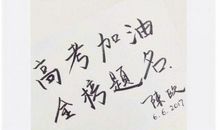 高考加油
金榜題名.
陳欧
6.6.2017